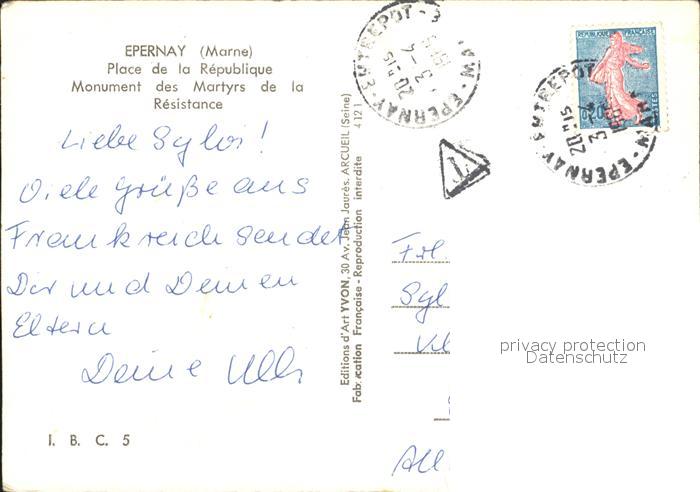 EPERNAY (Marne)
Place de la République
Monument des Martyrs de la
Résistance
Liebe Sylvi!
Viele Grüße aus
Frankreich sendet
Dir und Deinen
Eltern
Deine Ulli
I. B. C. 5
Editions d'Art YVON, 30 Av. Jean Jaurès. ARCUEIL (Seine)
Fabrication Française - Reproduction interdite 4121
EPERNAY-ENTREPOT
20H15
3-7
MARNE
T
REPUBLIQUE FRANÇAISE
0,20
POSTES
EPERNAY-ENTREPOT
20H15
3-7
Frl.
Syl
All
privacy protection
Datenschutz